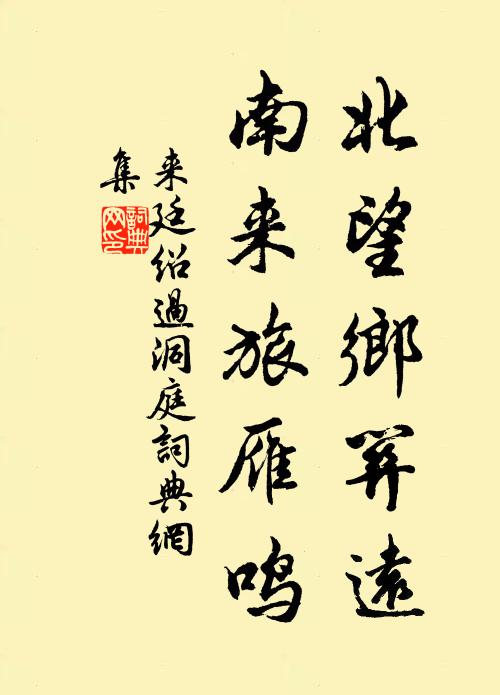 北望鄉關遠
南来旅雁鳴
来廷绍過洞庭詞典網
集
詞典
网印